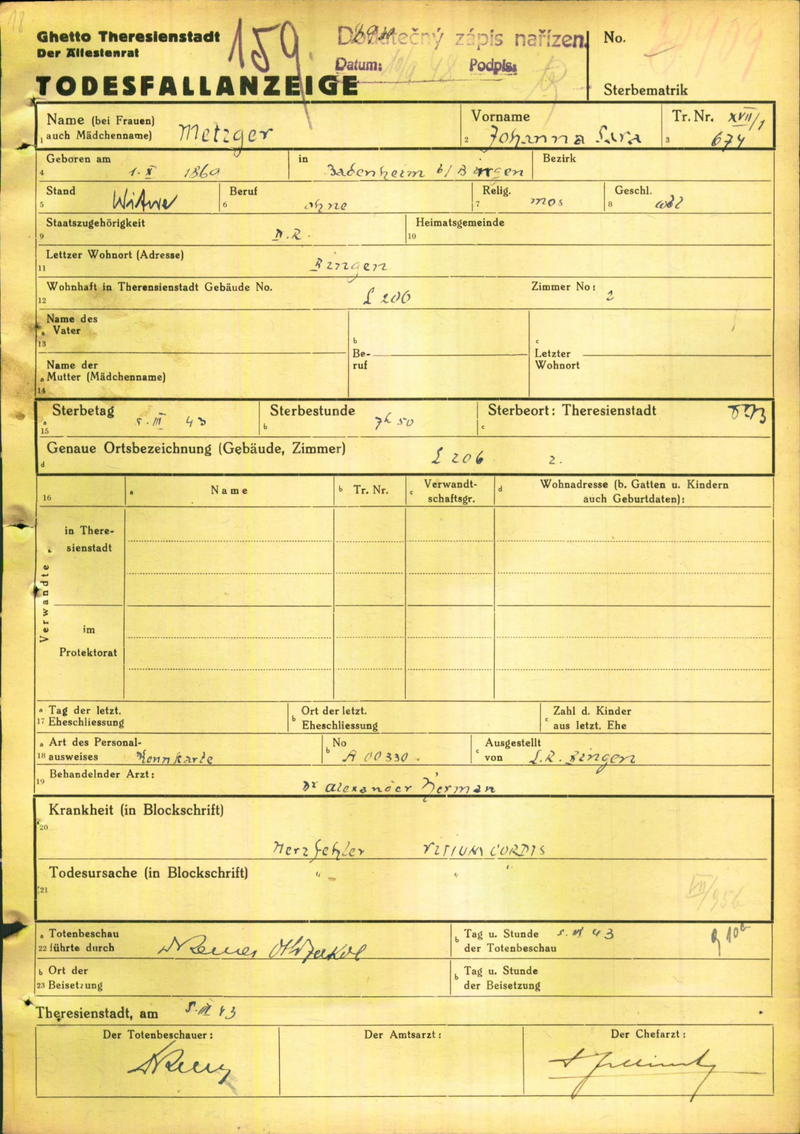 Ghetto Theresienstadt
Der Ältestenrat
159.
Dodatečný zápis nařízen.
Datum: Podpis:
No.
TODESFALLANZEIGE
Sterbematrik
Name (bei Frauen)
1 auch Mädchenname) Metzger
Vorname
2 Johanna Sara
Tr. Nr. XVII/1
3 674
Geboren am
4 1. X 1860
in
Bezirk
Stand
5 Witwe
Beruf
6 ohne
Relig.
7 mos
Geschl.
8 wbl
Staatszugehörigkeit
9 D.R.
Heimatsgemeinde
10
Lettzer Wohnort (Adresse)
11 Bingen
Wohnhaft in Therensienstadt Gebäude No.
12 L 206
Zimmer No: 2
a Name des
Vater
13
b
Be-
ruf
c
Letzter
Wohnort
Name der
a Mutter (Mädchenname)
14
a Sterbetag
15 5. III 43
Sterbestunde
b 7h 50
Sterbeort: Theresienstadt
c
Genaue Ortsbezeichnung (Gebäude, Zimmer)
d L 206 2.
16
a Name
b Tr. Nr.
c Verwandt-
schaftsgr.
d Wohnadresse (b. Gatten u. Kindern
auch Geburtdaten):
Verwandte
in There-
sienstadt
im
Protektorat
a Tag der letzt.
17 Eheschliessung
b Ort der letzt.
Eheschliessung
c Zahl d. Kinder
aus letzt. Ehe
a Art des Personal-
18 ausweises Kennkarte
b No
A 00330.
c Ausgestellt
von L.R. Bingen
Behandelnder Arzt:
19 Dr Alexander Herman
Krankheit (in Blockschrift)
20
Herzfehler VITIUM CORDIS
Todesursache (in Blockschrift) " "
21
VII/956
a Totenbeschau
22 führte durch
b Tag u. Stunde
der Totenbeschau 5. III 43
b Ort der
23 Beisetzung
b Tag u. Stunde
der Beisetzung
Theresienstadt, am 5. III 43
Der Totenbeschauer:
Der Amtsarzt:
Der Chefarzt: